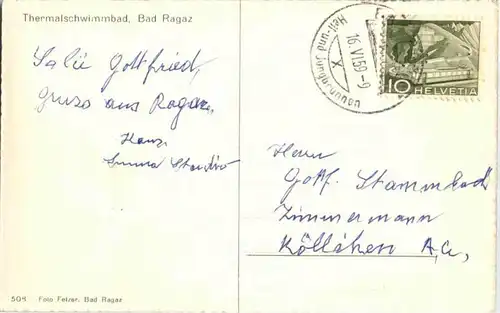 Thermalschwimmbad, Bad Ragaz
Salü Gottfried,
Gruss aus Ragaz,
Hans
Emma
Herrn
Gottf. Stammbach
Zimmermann
Kölliken A,G,
16.VI.59-9
X
10 HELVETIA
504 Foto Fetzer, Bad Ragaz